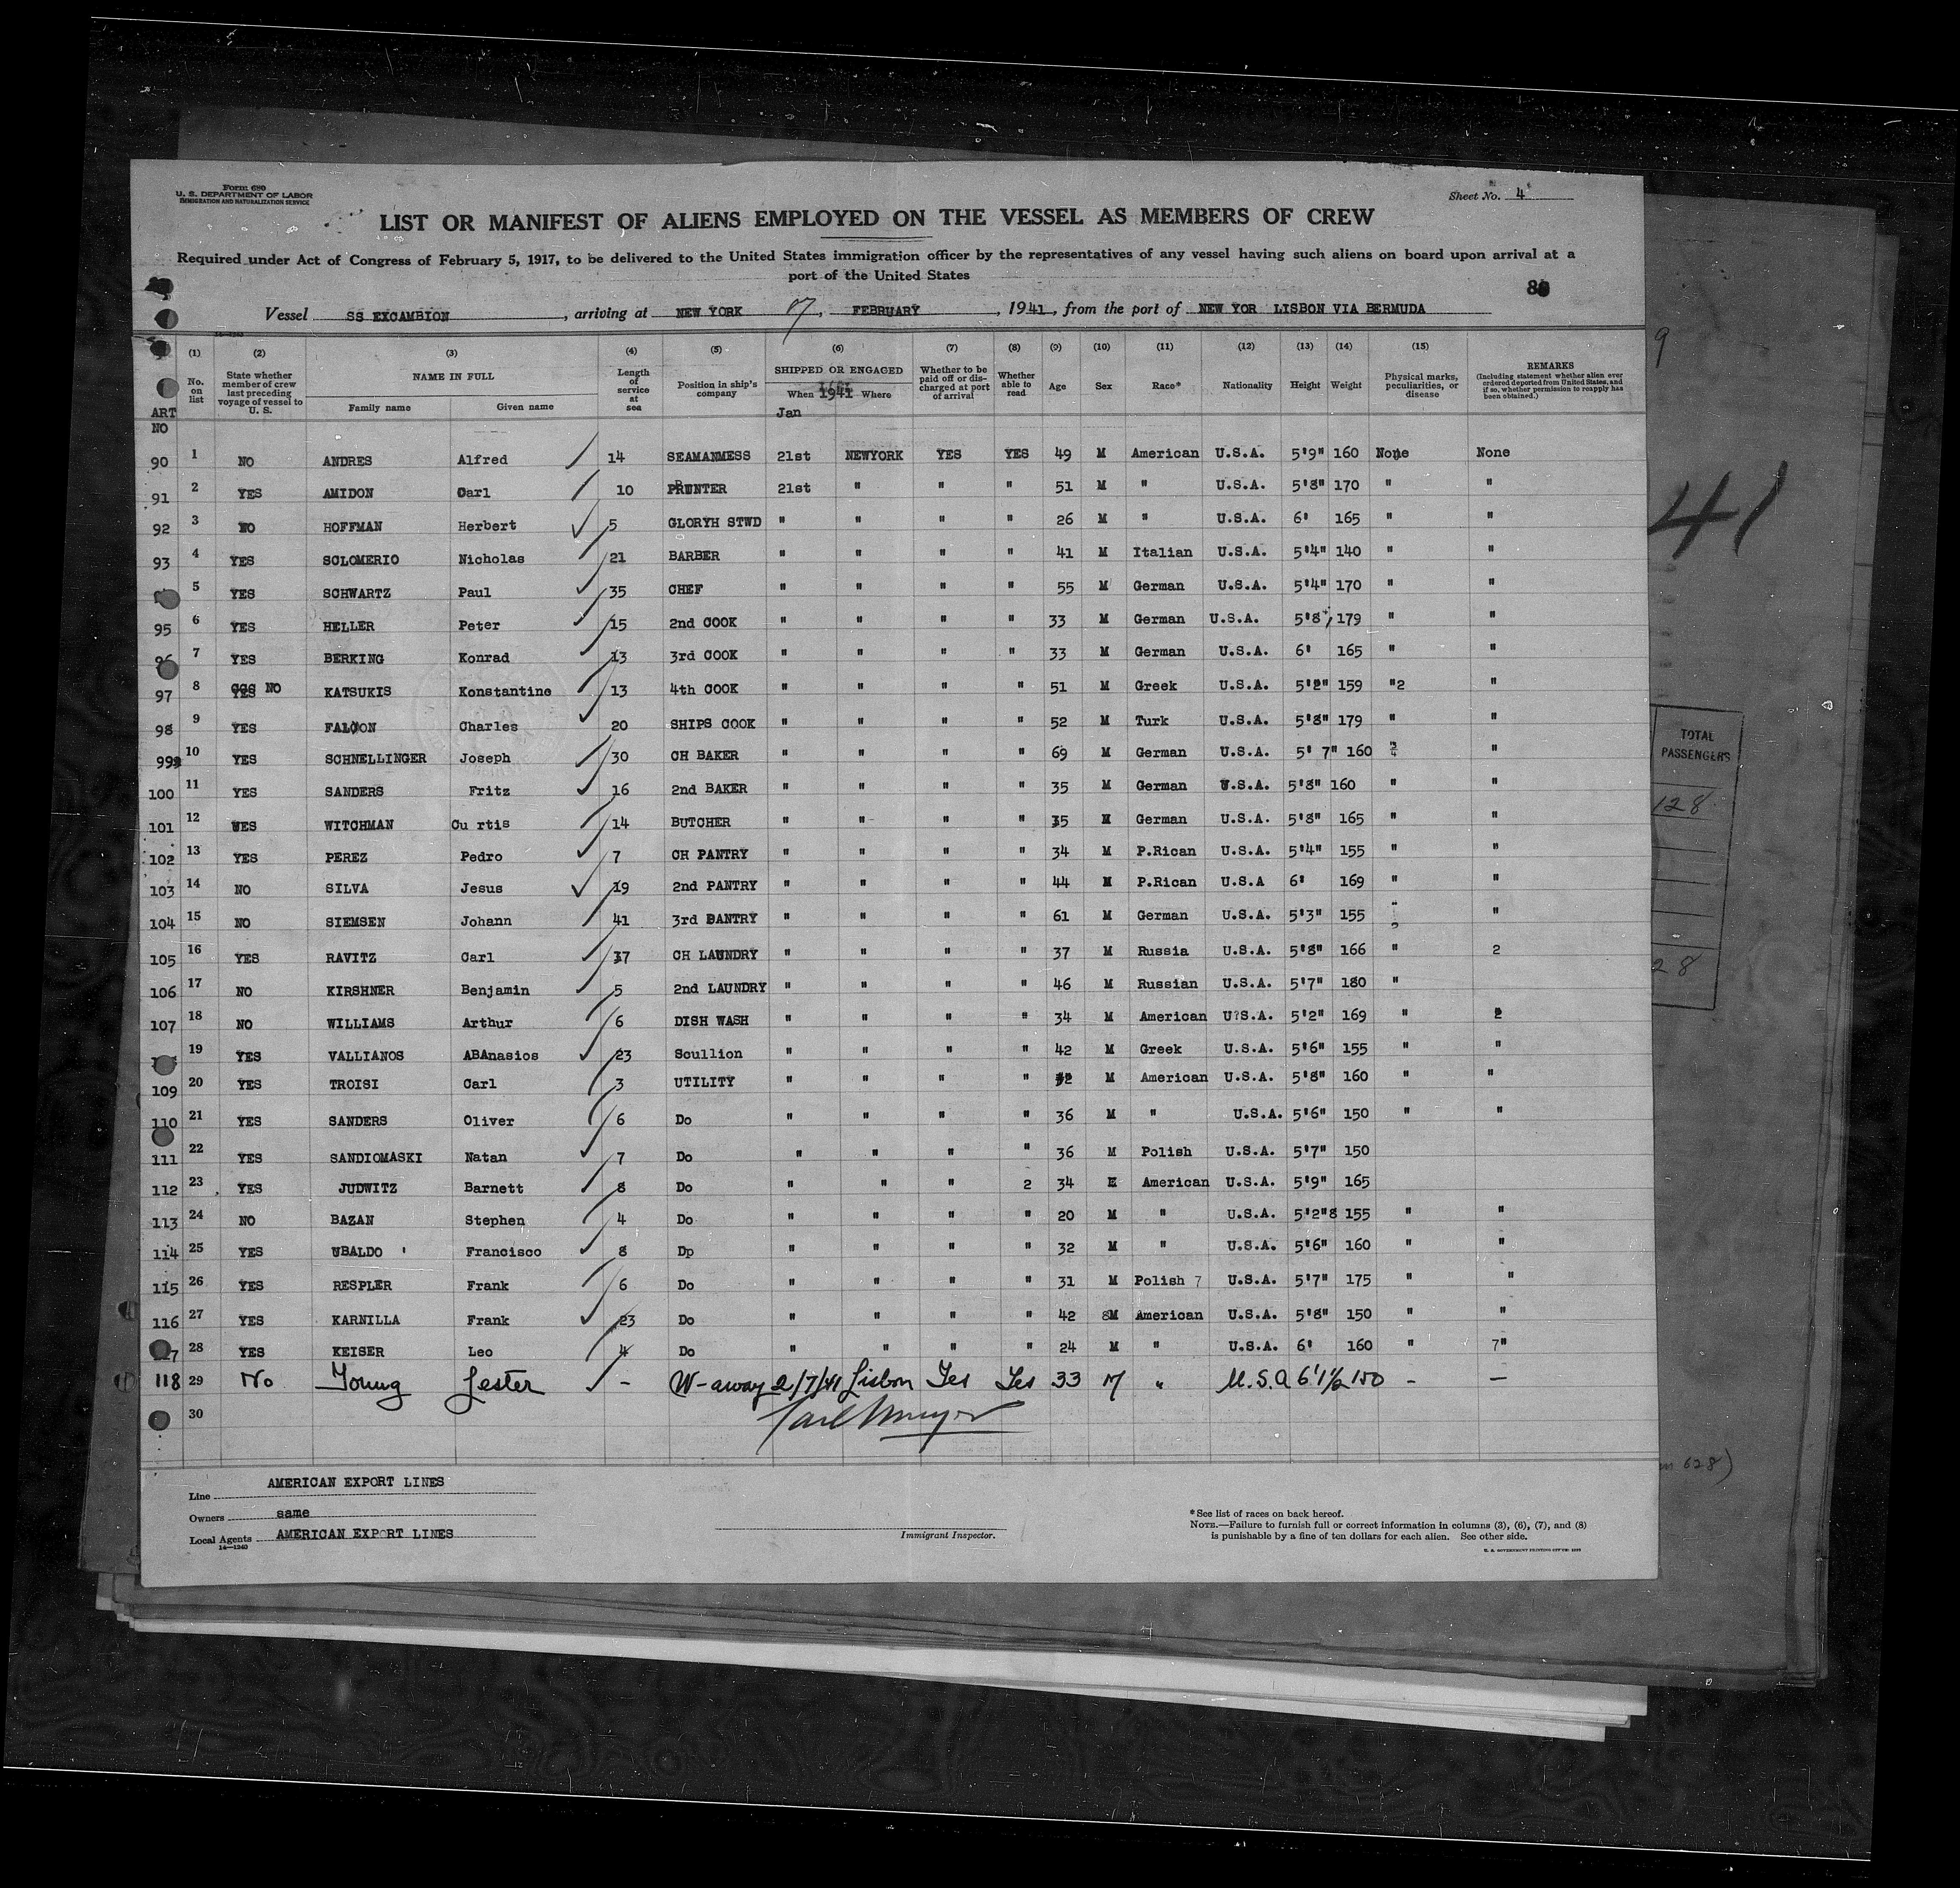 Form 680
U. S. DEPARTMENT OF LABOR
IMMIGRATION AND NATURALIZATION SERVICE
Sheet No. 4
LIST OR MANIFEST OF ALIENS EMPLOYED ON THE VESSEL AS MEMBERS OF CREW
Required under Act of Congress of February 5, 1917, to be delivered to the United States immigration officer by the representatives of any vessel having such aliens on board upon arrival at a
port of the United States
Vessel SS EXCAMBION, arriving at NEW YORK 17, FEBRUARY, 1941, from the port of NEW YOR LISBON VIA BERMUDA
(1) (2) (3) (4) (5) (6) (7) (8) (9) (10) (11) (12) (13) (14) (15)
No. on list
State whether member of crew last preceding voyage of vessel to U. S.
NAME IN FULL
Family name Given name
Length of service at sea
Position in ship's company
SHIPPED OR ENGAGED
When 1941 Where
Jan
Whether to be paid off or discharged at port of arrival
Whether able to read
Age Sex Race* Nationality Height Weight
Physical marks, peculiarities, or disease
REMARKS
(Including statement whether alien ever ordered deported from United States, and if so, whether permission to reapply has been obtained.)
ART
NO
90 1 NO ANDRES Alfred 14 SEAMANMESS 21st NEWYORK YES YES 49 M American U.S.A. 5'9" 160 None None
91 2 YES AMIDON Carl 10 PRUNTER 21st " " " 51 M " U.S.A. 5'8" 170 " "
92 3 NO HOFFMAN Herbert 5 GLORYH STWD " " " " 26 M " U.S.A. 6' 165 " "
93 4 YES SOLOMERIO Nicholas 21 BARBER " " " " 41 M Italian U.S.A. 5'4" 140 " "
5 YES SCHWARTZ Paul 35 CHEF " " " " 55 M German U.S.A. 5'4" 170 " "
95 6 YES HELLER Peter 15 2nd COOK " " " " 33 M German U.S.A. 5'8 179 " "
96 7 YES BERKING Konrad 13 3rd COOK " " " " 33 M German U.S.A. 6' 165 " "
97 8 YES NO KATSUKIS Konstantine 13 4th COOK " " " " 51 M Greek U.S.A. 5'2" 159 "2 "
98 9 YES FALCON Charles 20 SHIPS COOK " " " " 52 M Turk U.S.A. 5'8" 179 " "
99 10 YES SCHNELLINGER Joseph 30 CH BAKER " " " " 69 M German U.S.A. 5' 7" 160 "
100 11 YES SANDERS Fritz 16 2nd BAKER " " " " 35 M German U.S.A. 5'8" 160 " "
101 12 WES WITCHMAN Cu rtis 14 BUTCHER " " " " 35 M German U.S.A. 5'8" 165 " "
102 13 YES PEREZ Pedro 7 CH PANTRY " " " " 34 M P.Rican U.S.A. 5'4" 155 " "
103 14 NO SILVA Jesus 19 2nd PANTRY " " " " 44 M P.Rican U.S.A 6' 169 " "
104 15 NO SIEMSEN Johann 41 3rd BANTRY " " " " 61 M German U.S.A. 5'3" 155 "
105 16 YES RAVITZ Carl 37 CH LAUNDRY " " " " 37 M Russia U.S.A. 5'8" 166 " 2
106 17 NO KIRSHNER Benjamin 5 2nd LAUNDRY " " " " 46 M Russian U.S.A. 5'7" 180 "
107 18 NO WILLIAMS Arthur 6 DISH WASH " " " " 34 M American U?S.A. 5'2" 169 " 2
19 YES VALLIANOS ABAnasios 23 Scullion " " " " 42 M Greek U.S.A. 5'6" 155 " "
109 20 YES TROISI Carl 3 UTILITY " " " " M American U.S.A. 5'8" 160 " "
110 21 YES SANDERS Oliver 6 Do " " " " 36 M " U.S.A. 5'6" 150 " "
111 22 YES SANDIOMASKI Natan 7 Do " " " " 36 M Polish U.S.A. 5'7" 150
112 23 YES JUDWITZ Barnett 8 Do " " " 2 34 E American U.S.A. 5'9" 165
113 24 NO BAZAN Stephen 4 Do " " " " 20 M " U.S.A. 5'2"8 155 " "
114 25 YES UBALDO ' Francisco 8 Dp " " " " 32 M " U.S.A. 5'6" 160 " "
115 26 YES RESPLER Frank 6 Do " " " " 31 M Polish 7 U.S.A. 5'7" 175 " "
116 27 YES KARNILLA Frank 23 Do " " " " 42 8M American U.S.A. 5'8" 150 " "
7 28 YES KEISER Leo 4 Do " " " " 24 M " U.S.A. 6' 160 " 7"
118 29 No Young Lester - W-away 2/7/41 Lisbon Yes Yes 33 M " U.S.A 6'1½ 150 - -
30
Line AMERICAN EXPORT LINES
Owners same
Local Agents AMERICAN EXPORT LINES
14—1240
Immigrant Inspector.
*See list of races on back hereof.
NOTE.—Failure to furnish full or correct information in columns (3), (6), (7), and (8)
is punishable by a fine of ten dollars for each alien. See other side.
U. S. GOVERNMENT PRINTING OFFICE
9
41
TOTAL
PASSENGERS
128
28
628)